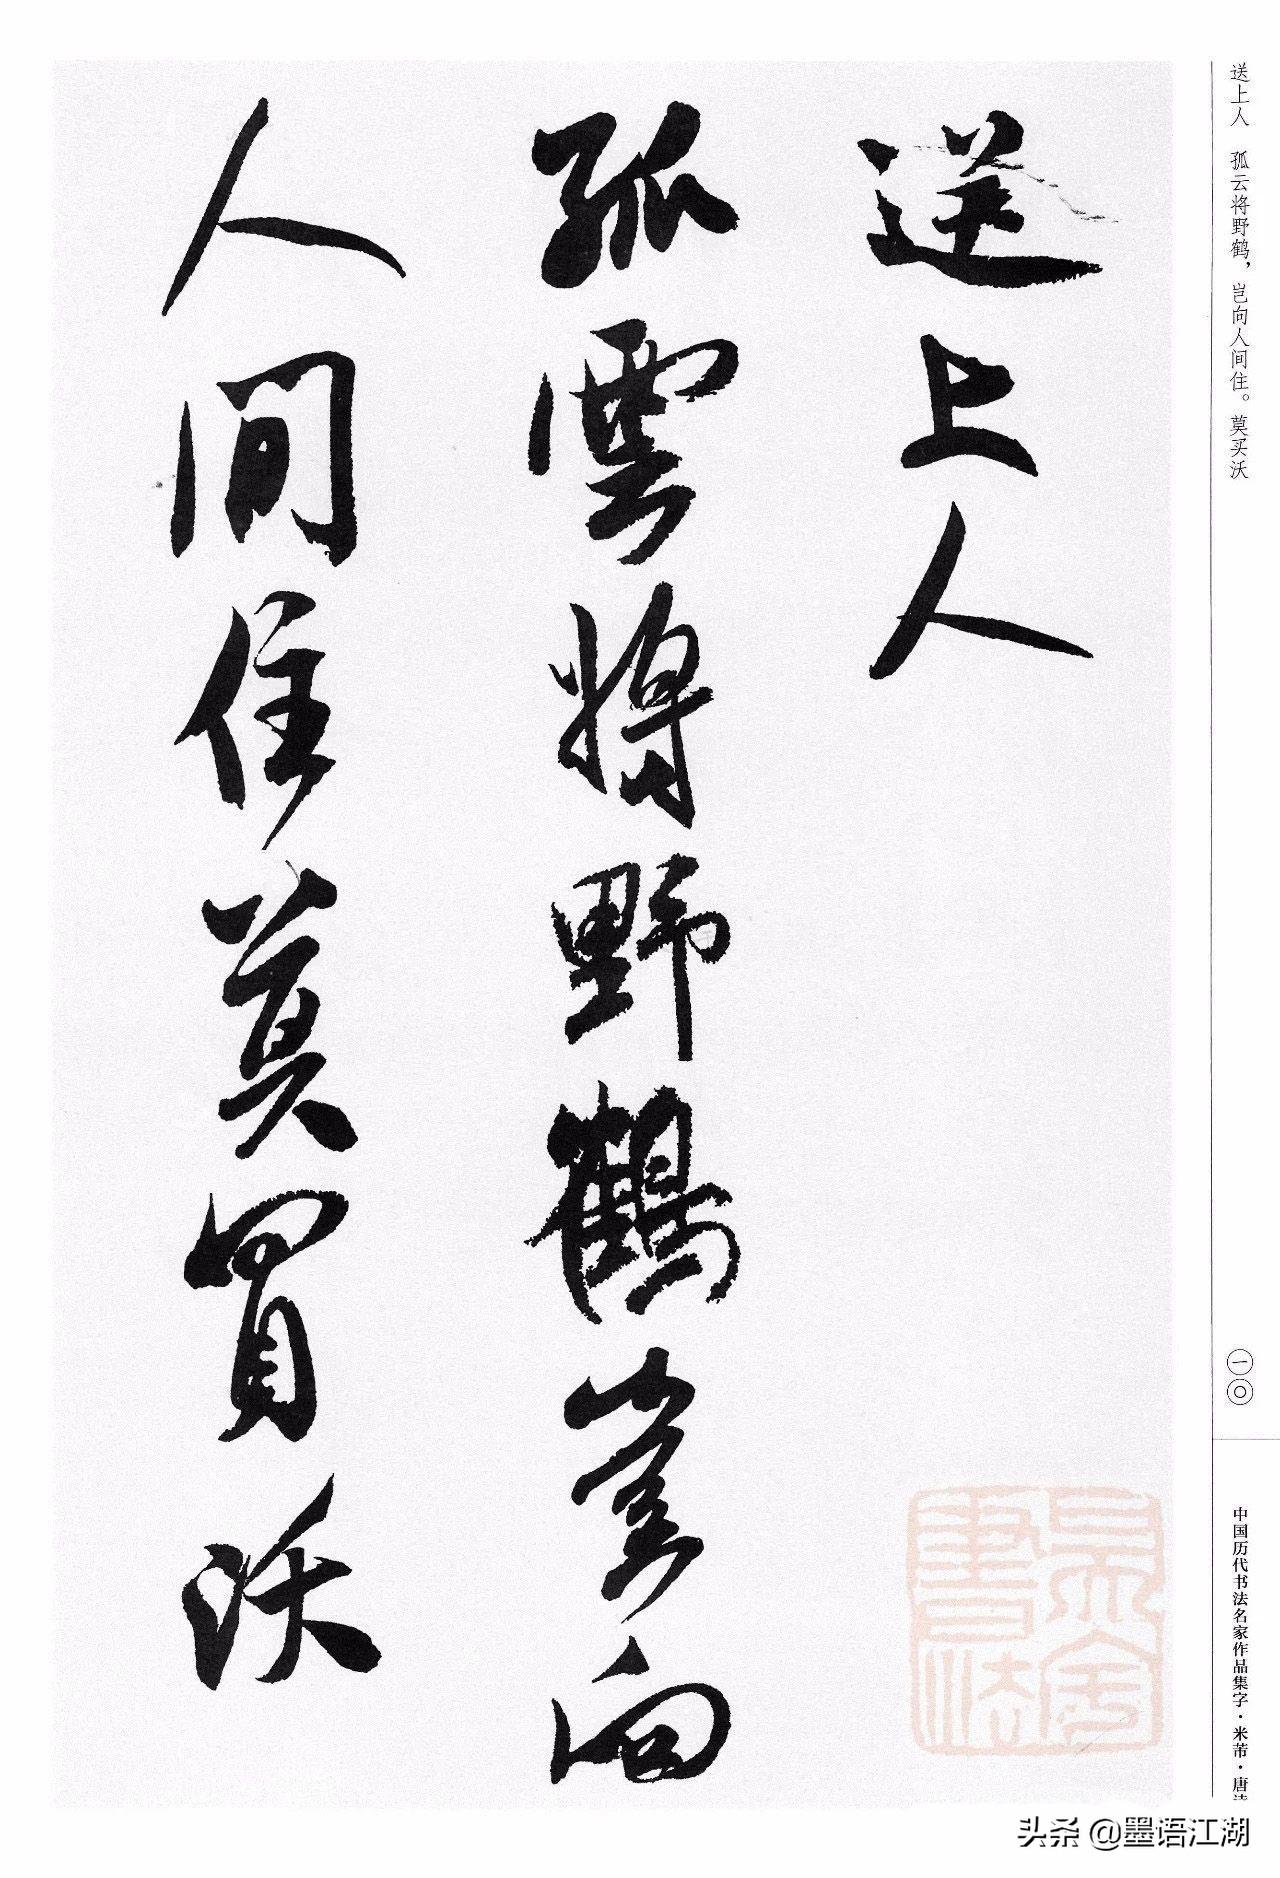 送上人
孤雲將野鶴豈向
人間住莫買沃
送上人 孤云将野鹤，岂向人间住。莫买沃
一〇
中国历代书法名家作品集字·米芾·唐诗
头条 @墨语江湖